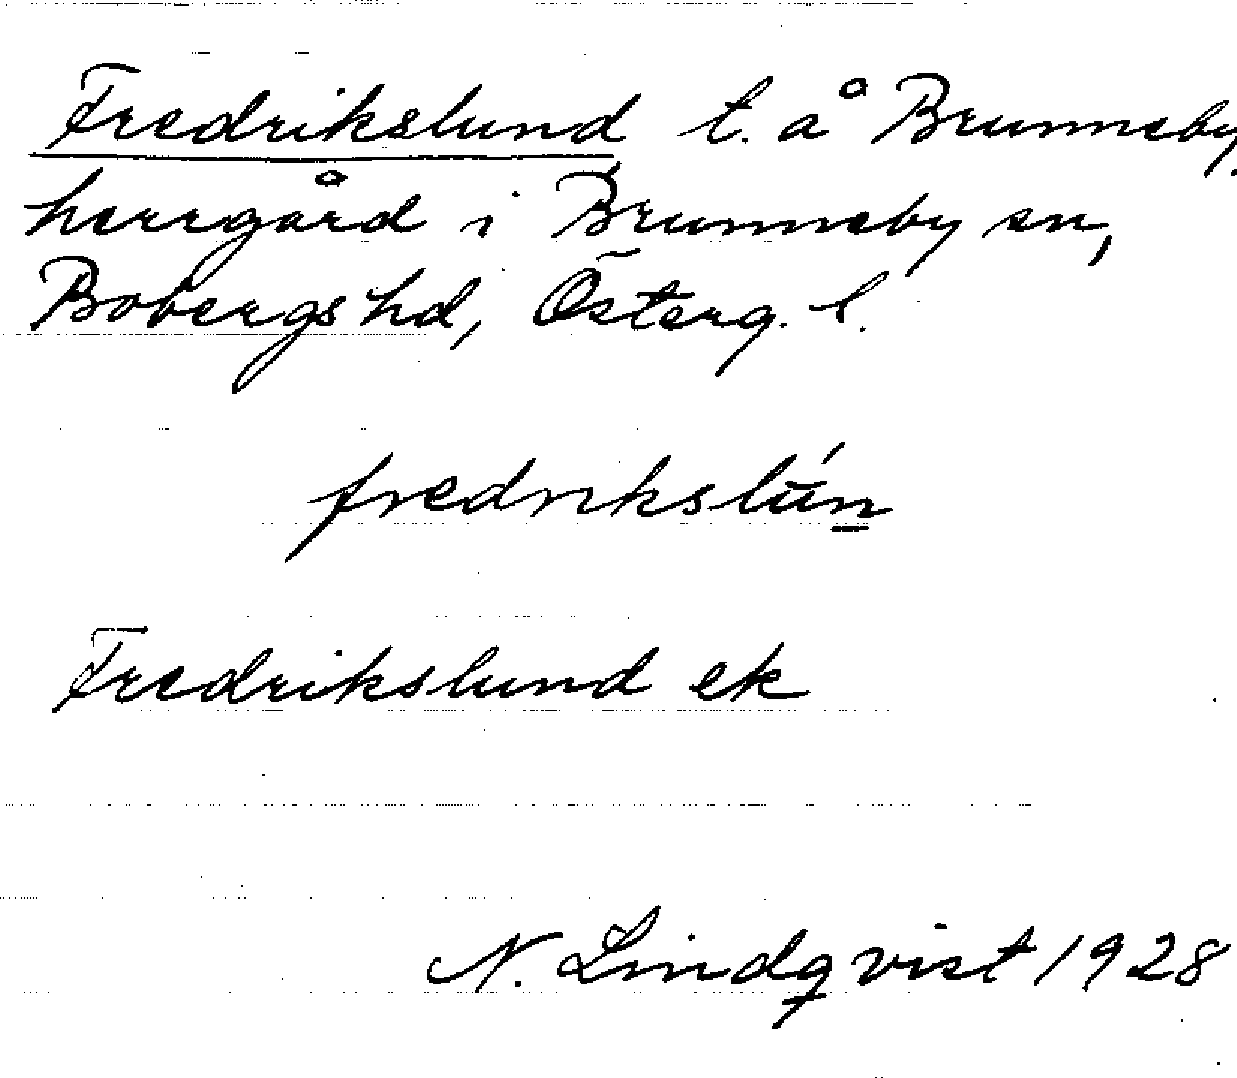 Fredrikslund t. å Brunneby,
herrgård i Brunneby sn,
Bobergs hd, Österg. l.
fredrikslún
Fredrikslund ek
N. Lindqvist 1928